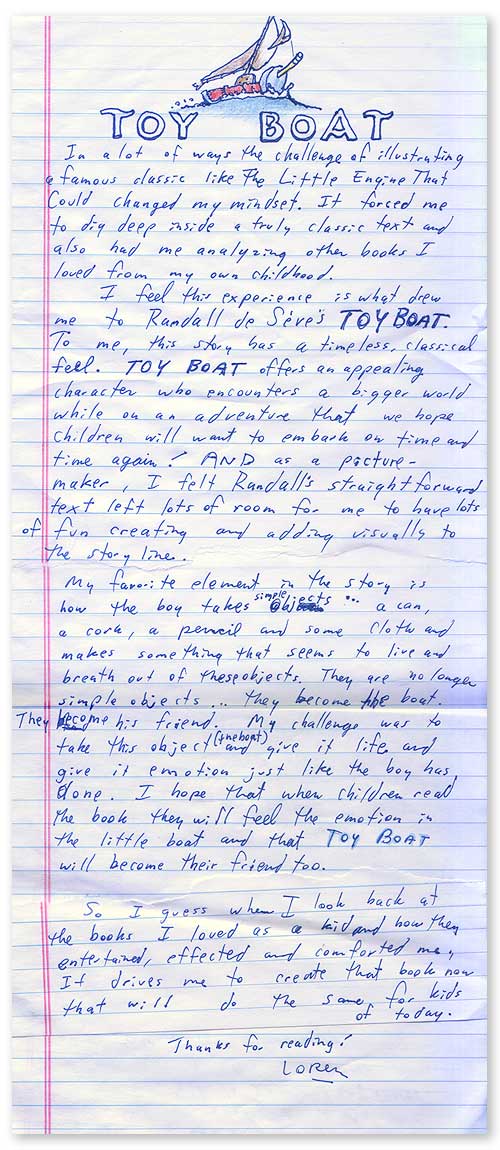 TOY BOAT
In a lot of ways the challenge of illustrating
a famous classic like The Little Engine That
Could changed my mindset. It forced me
to dig deep inside a truly classic text and
also had me analyzing other books I
loved from my own childhood.
I feel this experience is what drew
me to Randall de Séve's TOY BOAT.
To me, this story has a timeless, classical
feel. TOY BOAT offers an appealing
character who encounters a bigger world
while on an adventure that we hope
children will want to embark on time and
time again! AND as a picture-
maker, I felt Randall's straightforward
text left lots of room for me to have lots
of fun creating and adding visually to
the story line.
My favorite element in the story is
how the boy takes simple objects ... a can,
a cork, a pencil and some cloth and
makes something that seems to live and
breath out of these objects. They are no longer
simple objects... they become the boat.
They become his friend. My challenge was to
take this object (the boat) and give it life and
give it emotion just like the boy has
done. I hope that when children read
the book they will feel the emotion in
the little boat and that TOY BOAT
will become their friend too.
So I guess when I look back at
the books I loved as a kid and how they
entertained, effected and comforted me,
It drives me to create that book now
that will do the same for kids
of today.
Thanks for reading!
LOREN